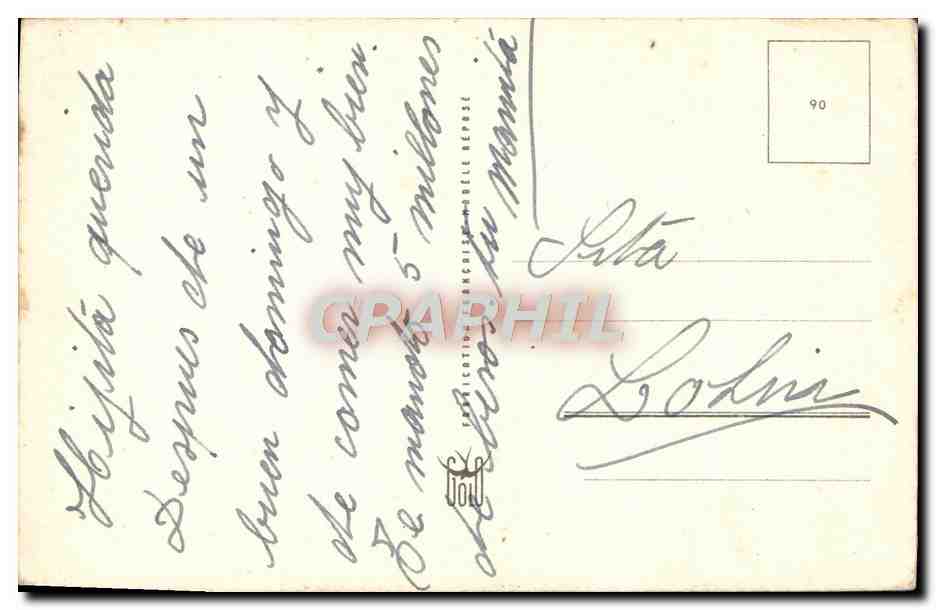 Hijita querida
Despues de un
buen domingo y
de comer muy bien.
Te mando 5 millones
de besos tu mamita
FABRICATION FRANÇAISE - MODÈLE DÉPOSÉ
90
Srta
CPAPHIL